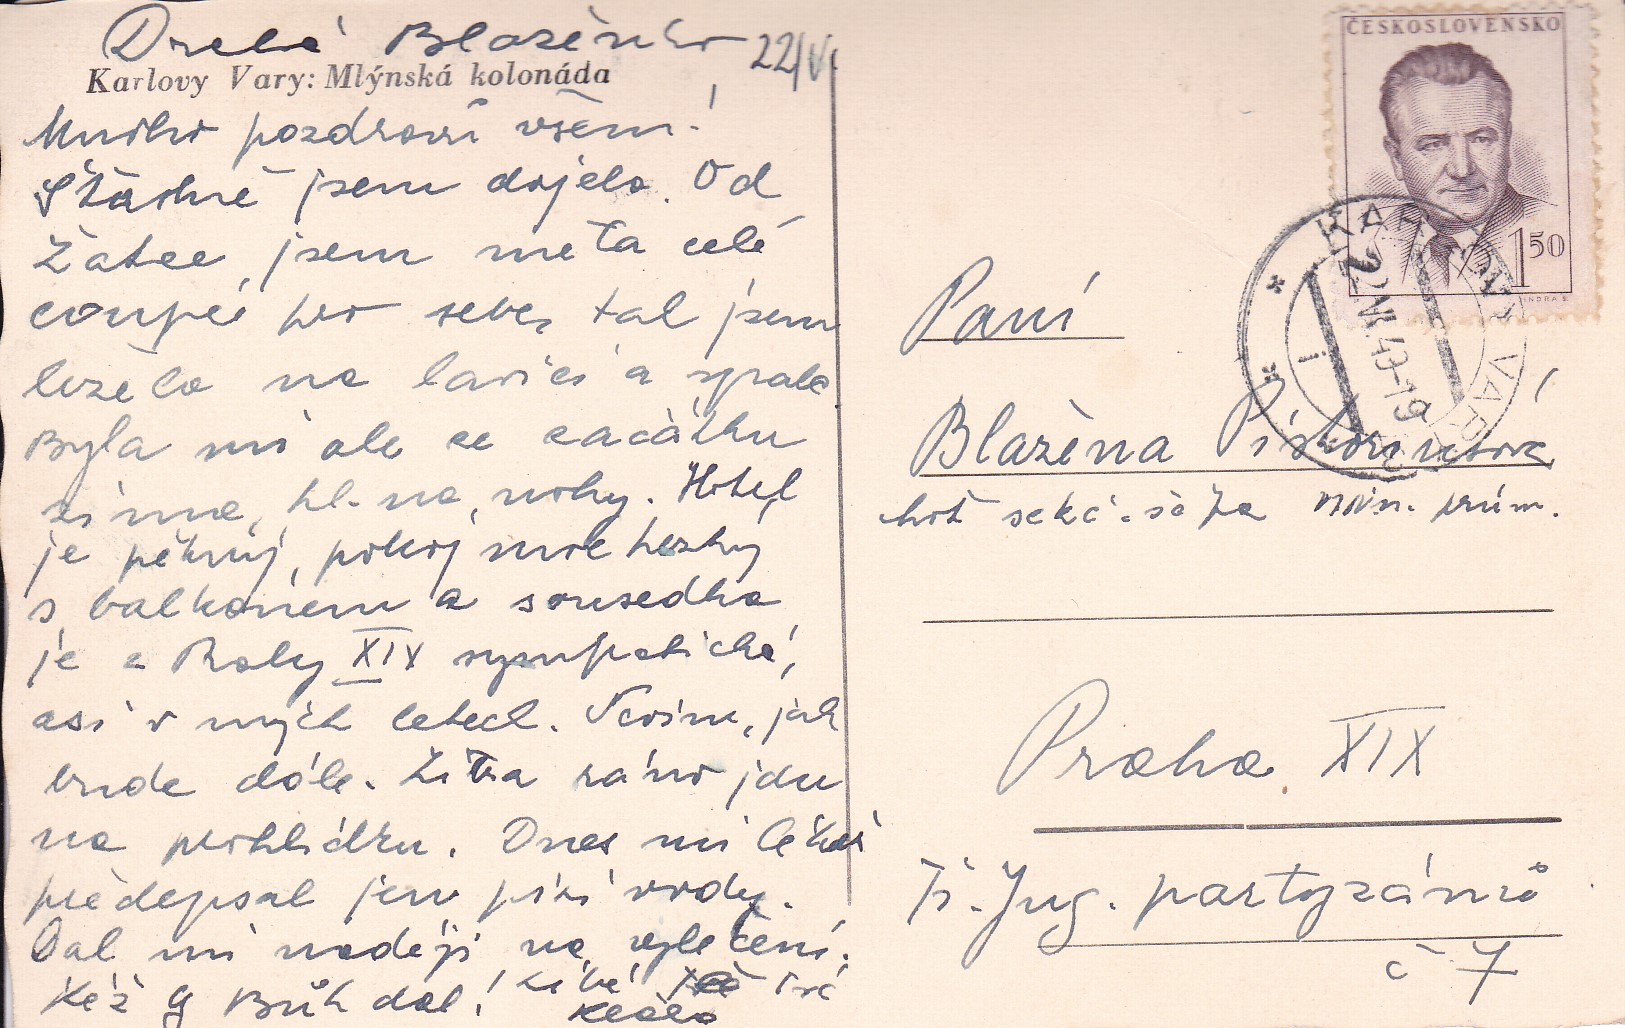 Drahá Blaženko 22/VI
Karlovy Vary: Mlýnská kolonáda
Mnoho pozdravů všem!
Šťastně jsem dojela. Od
Žatce jsem měla celé
coupée pro sebe, tak jsem
ležela na lavici a spala
Byla mi ale ze začátku
zima, hl. na nohy. Hotel
je pěkný, pokoj moc hezký
s balkonem a sousedka
je z Prahy XIX sympatická,
asi v mých letech. Nevím, jak
bude dále. Zítra ráno jdu
na prohlídku. Dnes mi lékař
předepsal jen pití vody.
Dal mi naději na vyléčení.
Kéž by Bůh dal! Líbá Tě Tvá
ČESKOSLOVENSKO
1 50
KARLOVY VARY
Paní
Blažena
Praha XIX
Tř. Jug. partyzánů
č 7